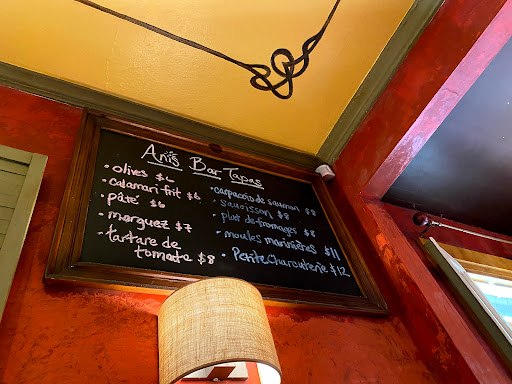 Anis Bar Tapas
• olives $6
• calamari frit $6
• pâté $6
• merguez $7
• tartare de
tomate $8
• carpaccio de saumon $8
• saucisson $8
• plat de fromages $8
• moules marinières $11
Petite Charcuterie $12